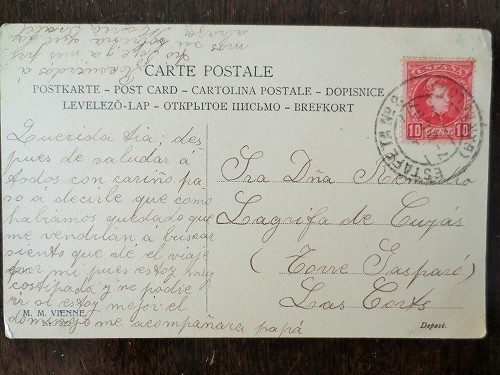 CARTE POSTALE
POSTKARTE - POST CARD - CARTOLINA POSTALE - DOPISNICE
LEVELEZŐ-LAP - ОТКРЫТОЕ ПИСЬМО - BREFKORT
Querida tia; des
pues de saludar á
todos con cariño pa
so á decirle que como
habramos quedado que
me vendrian á buscar
siento que dé el viaje
por mi pues estoy muy
costipada y no podre
ir si estoy mejor el
domingo me acompañara papá
Recuerdos á
tio Pepe y a mis
mos su sobrina que
abraza Maria
Sra Dña
Lagrifa de Cuyás
(Torre Gasparó)
Las Corts
ESPAÑA
10 CENT. 10
ESTAFETA Nº 2
M. M. VIENNE
Deposé.